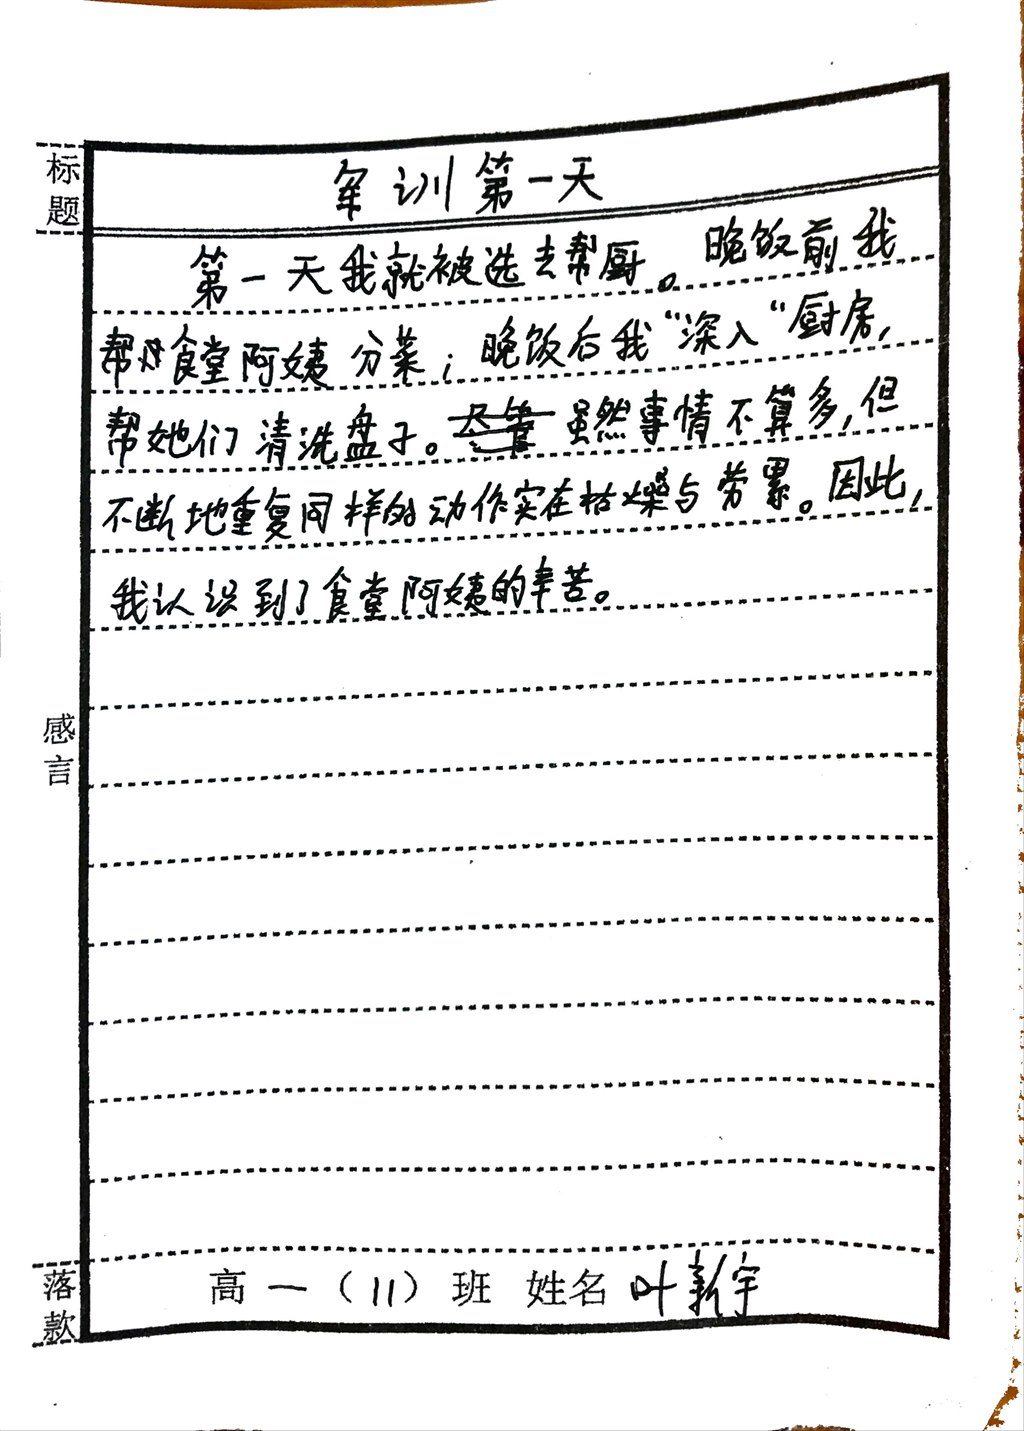 标题
军训第一天
第一天我就被选去帮厨。晚饭前我
帮助食堂阿姨分菜；晚饭后我“深入“厨房，
帮她们清洗盘子。虽然事情不算多，但
不断地重复同样的动作实在枯燥与劳累。因此，
我认识到了食堂阿姨的辛苦。
感言
落款
高一（11）班 姓名 叶新宇